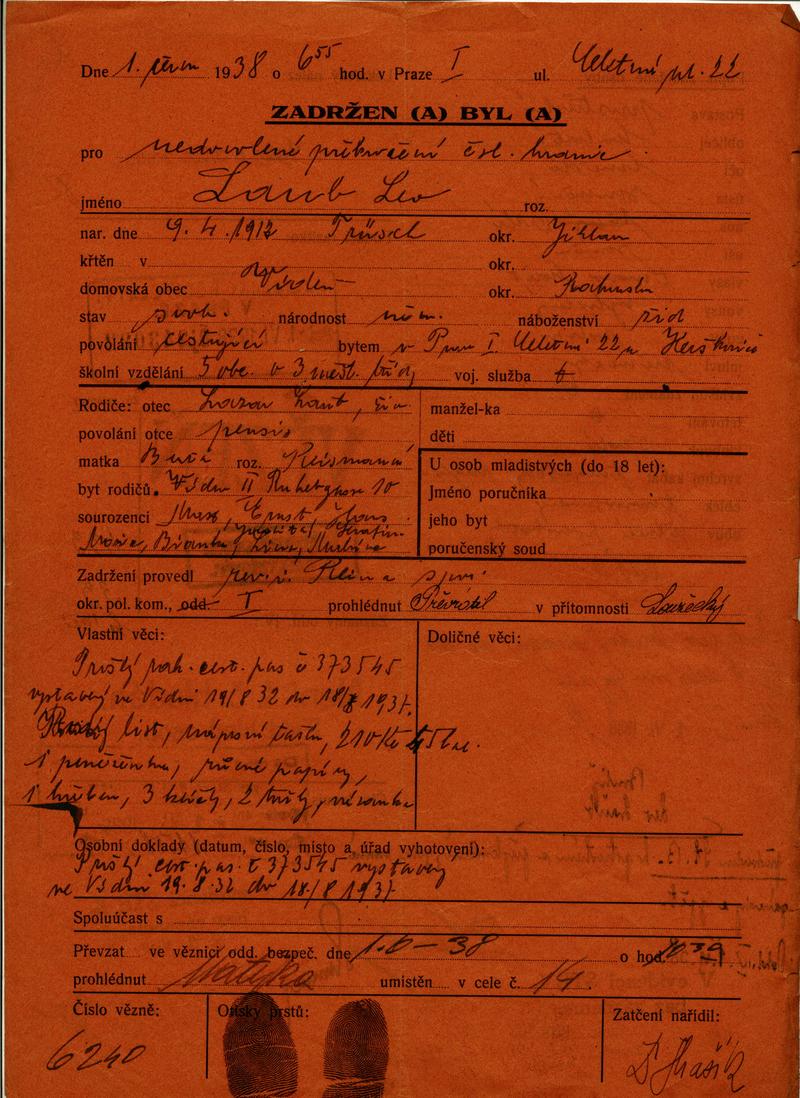 Dne 1. června 1938 o 6 55 hod. v Praze I ul. Celetná ul. 22
ZADRŽEN (A) BYL (A)
pro nedovolené překročení čsl. hranic
jméno Laub Leo roz.
nar. dne 9. 4. 1912 Trüsch okr. Jihlava
křtěn v okr.
domovská obec Vídeň okr. Rakousko
stav svob. národnost něm. náboženství žid
povolání cestující bytem v Praze I. Celetná 22 u
školní vzdělání 5 obc. a 3 měšť. třídy voj. služba
Rodiče: otec Lazar Laub,
povolání otce pensis
matka Berta roz.
byt rodičů Vídeň II 10
sourozenci Max, Ernst, Hans
Marie, Bianka,
manžel-ka
děti
U osob mladistvých (do 18 let):
Jméno poručníka
jeho byt
poručenský soud
Zadržení provedl rev. i.
okr. pol. kom., odd. I prohlédnut v přítomnosti
Vlastní věci:
Prošlý rak. cest. pas č 373545
vystavený ve Vídni 19/8 32 do 18/8 1937.
list, náprsní tašku, 210 Kč
1 peněženka, různé papíry,
1 hřeben, 3 klíče, 2 tužky,
Doličné věci:
Osobní doklady (datum, číslo, místo a úřad vyhotovení):
Prošlý cest. pas. č 373545 vystavený
ve Vídni 19. 8. 32 do 18./8 1937
Spoluúčast s
Převzat ve věznici odd. bezpeč. dne 1. 6 - 38 o hod.
prohlédnut umístěn v cele č. 14.
Číslo vězně:
6240
Otisky prstů:
Zatčení nařídil: